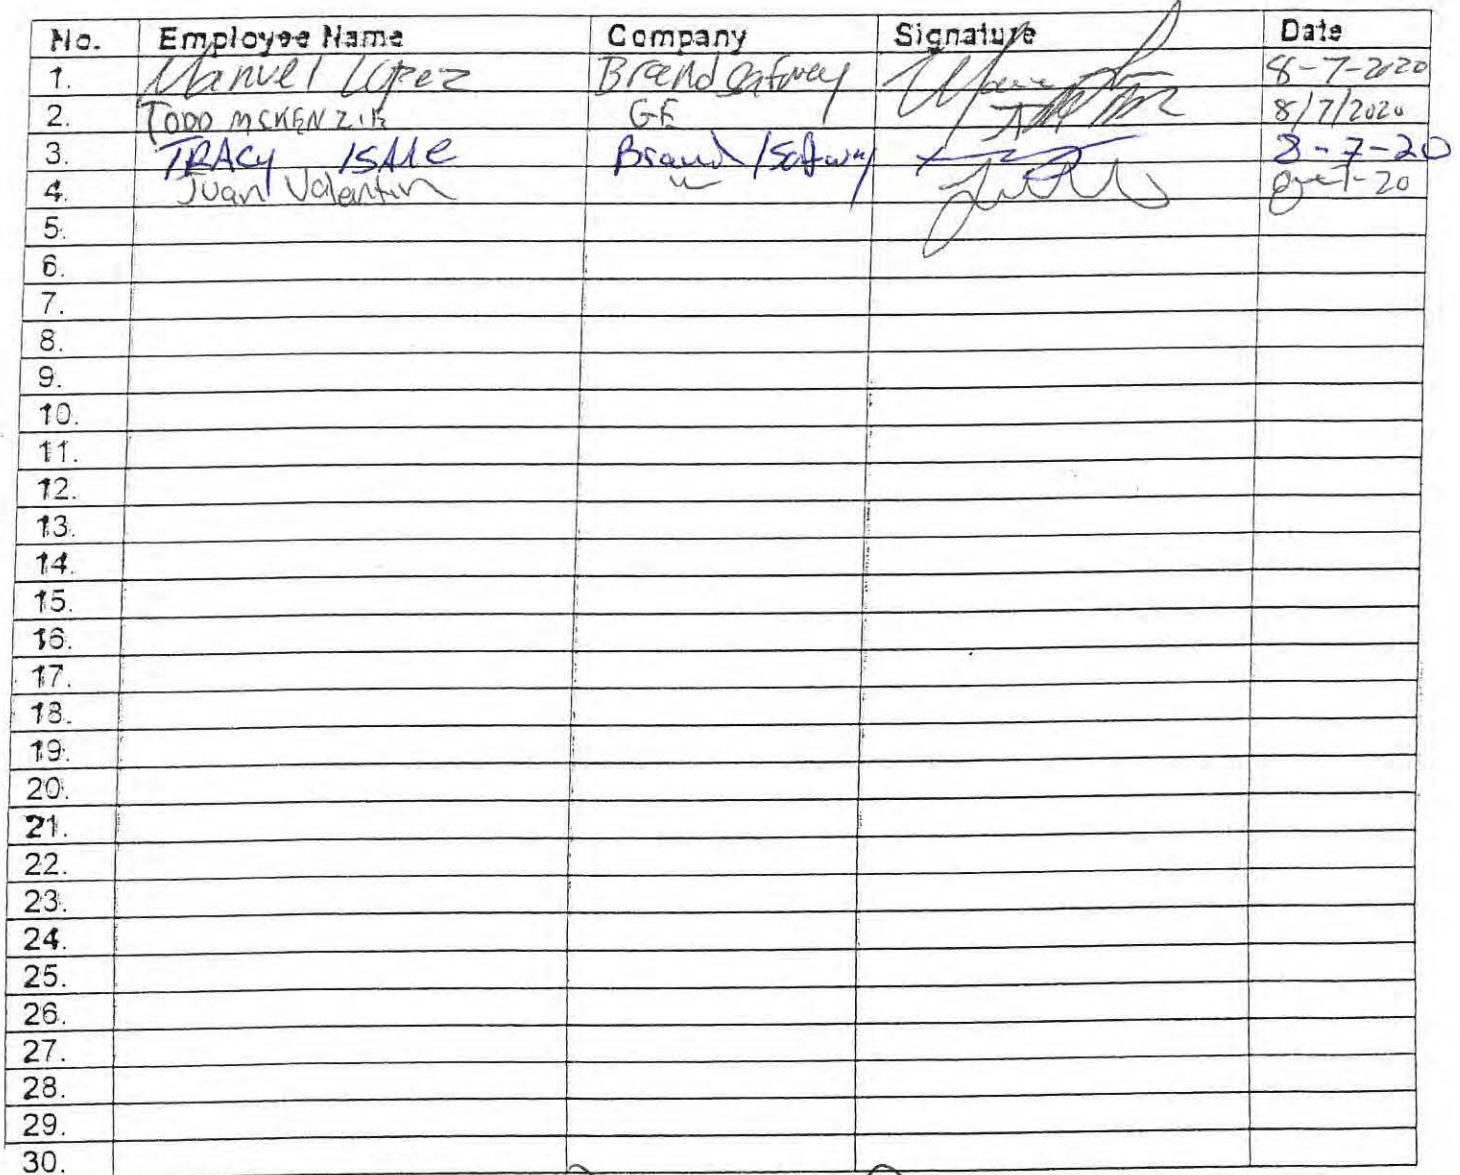 No. Employee Name Company Signature Date
1. Manuel Lopez Brand Safway 8-7-2020
2. TODD MCKENZIE GE 8/7/2020
3. TRACY Brand/Safway 8-7-20
4. Juan Valentin 〃
5.
6.
7.
8.
9.
10.
11.
12.
13.
14.
15.
16.
17.
18.
19.
20.
21.
22.
23.
24.
25.
26.
27.
28.
29.
30.